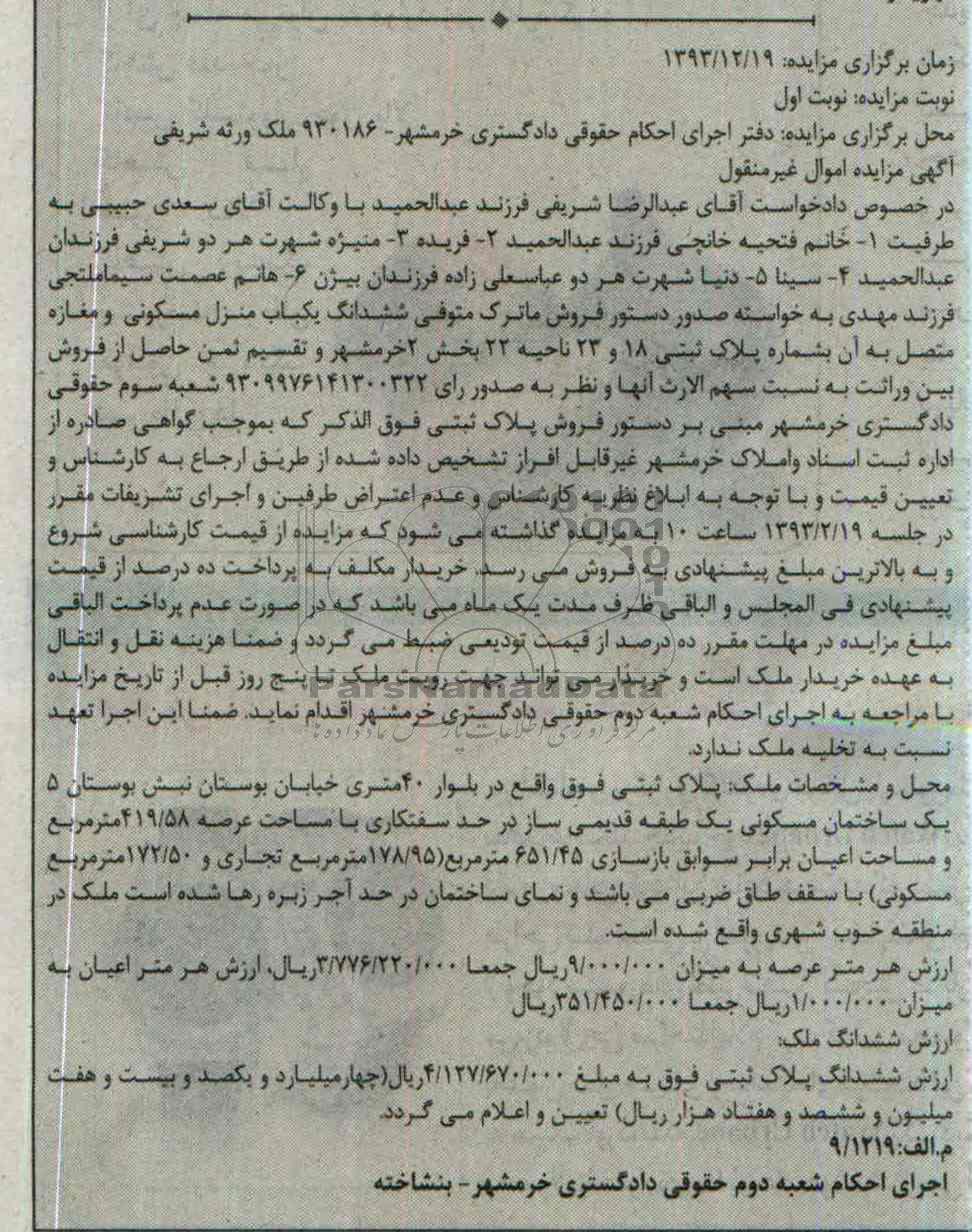 زمان برگزاری مزایده: ۱۳۹۳/۱۲/۱۹
نوبت مزایده: نوبت اول
محل برگزاری مزایده: دفتر اجرای احکام حقوقی دادگستری خرمشهر- ۹۳۰۱۸۶ ملک ورثه شریفی
آگهی مزایده اموال غیرمنقول
در خصوص دادخواست آقای عبدالرضا شریفی فرزند عبدالحمید با وکالت آقای سعدی حبیبی به
طرفیت ۱- خانم فتحیه خانچی فرزند عبدالحمید ۲- فریده ۳- منیژه شهرت هر دو شریفی فرزندان
عبدالحمید ۴- سینا ۵- دنیا شهرت هر دو عباسعلی زاده فرزندان بیژن ۶- هانم عصمت سیماملتجی
فرزند مهدی به خواسته صدور دستور فروش ماترک متوفی ششدانگ یکباب منزل مسکونی و مغازه
متصل به آن بشماره پلاک ثبتی ۱۸ و ۲۳ ناحیه ۲۲ بخش ۲خرمشهر و تقسیم ثمن حاصل از فروش
بین وراثت به نسبت سهم الارث آنها و نظر به صدور رای ۹۳۰۹۹۷۶۱۴۱۳۰۰۳۲۲ شعبه سوم حقوقی
دادگستری خرمشهر مبنی بر دستور فروش پلاک ثبتی فوق الذکر که بموجب گواهی صادره از
اداره ثبت اسناد واملاک خرمشهر غیرقابل افراز تشخیص داده شده از طریق ارجاع به کارشناس و
تعیین قیمت و با توجه به ابلاغ نظریه کارشناس و عدم اعتراض طرفین و اجرای تشریفات مقرر
در جلسه ۱۳۹۳/۲/۱۹ ساعت ۱۰ به مزایده گذاشته می شود که مزایده از قیمت کارشناسی شروع
و به بالاترین مبلغ پیشنهادی به فروش می رسد. خریدار مکلف به پرداخت ده درصد از قیمت
پیشنهادی فی المجلس و الباقی ظرف مدت یک ماه می باشد که در صورت عدم پرداخت الباقی
مبلغ مزایده در مهلت مقرر ده درصد از قیمت تودیعی ضبط می گردد و ضمنا هزینه نقل و انتقال
به عهده خریدار ملک است و خریدار می تواند جهت رویت ملک تا پنج روز قبل از تاریخ مزایده
با مراجعه به اجرای احکام شعبه دوم حقوقی دادگستری خرمشهر اقدام نماید. ضمنا این اجرا تعهد
نسبت به تخلیه ملک ندارد.
محل و مشخصات ملک: پلاک ثبتی فوق واقع در بلوار ۴۰متری خیابان بوستان نبش بوستان ۵
یک ساختمان مسکونی یک طبقه قدیمی ساز در حد سفتکاری با مساحت عرصه ۴۱۹/۵۸مترمربع
و مساحت اعیان برابر سوابق بازسازی ۶۵۱/۴۵ مترمربع(۱۷۸/۹۵مترمربع تجاری و ۱۷۲/۵۰مترمربع
مسکونی) با سقف طاق ضربی می باشد و نمای ساختمان در حد آجر زبره رها شده است ملک در
منطقه خوب شهری واقع شده است.
ارزش هر متر عرصه به میزان ۹/۰۰۰/۰۰۰ریال جمعا ۳/۷۷۶/۲۲۰/۰۰۰ریال، ارزش هر متر اعیان به
میزان ۱/۰۰۰/۰۰۰ریال جمعا ۳۵۱/۴۵۰/۰۰۰ریال
ارزش ششدانگ ملک:
ارزش ششدانگ پلاک ثبتی فوق به مبلغ ۴/۱۲۷/۶۷۰/۰۰۰ریال(چهارمیلیارد و یکصد و بیست و هفت
میلیون و ششصد و هفتاد هزار ریال) تعیین و اعلام می گردد.
م.الف:۹/۱۲۱۹
اجرای احکام شعبه دوم حقوقی دادگستری خرمشهر - بنشاخته
ParsNamadData